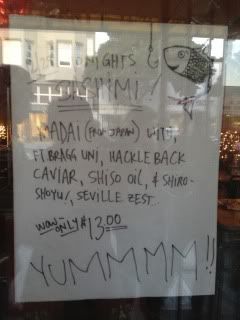 TONIGHTS
SASHIMI!
MADAI (FROM JAPAN) WITH,
FT BRAGG UNI, HACKLE BACK
CAVIAR, SHISO OIL, & SHIRO-
SHOYU, SEVILLE ZEST.
WOW-ONLY $13.00
YUMMMM!!